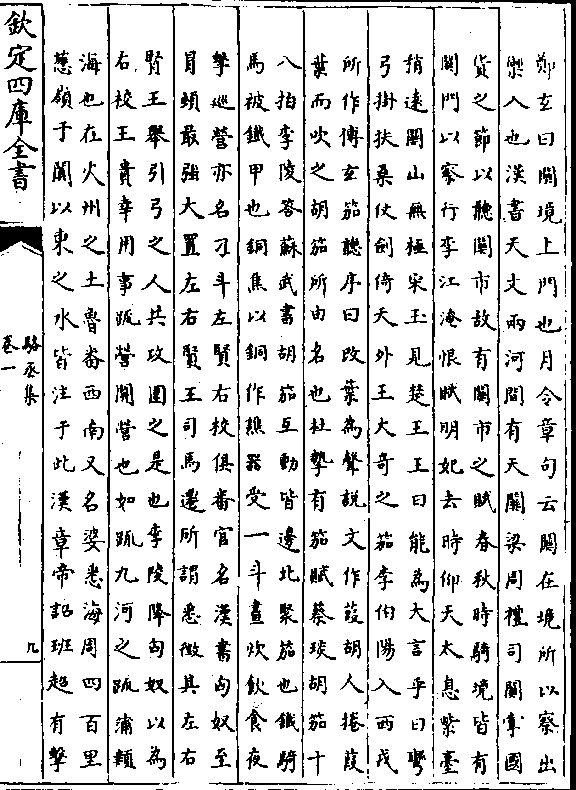 鄭玄曰關境上門也月令章句云關在境所以察出
禦入也漢書天文兩河間有天關梁周禮司關掌國
貨之節以聽關市故有關市之賦春秋時騎境皆有
關門以察行李江淹恨賦明妃去時仰天太息紫臺
稍遠關山無極宋玉見楚王王曰能為大言乎曰彎
弓掛扶桑仗劍倚天外王大奇之笳李伯陽入西戎
所作傅玄笳聽序曰改葉為聲説文作葭胡人捲葭
葉而吹之胡笳所由名也杜摯有笳賦蔡琰胡笳十
八拍李陵答蘇武書胡笳互動皆邊北聚笳也鐵騎
馬被鐵甲也銅焦以銅作鐎器受一斗晝炊飲食夜
擊巡營亦名刁斗左賢右校俱番官名漢書匈奴至
冒頓最強大置左右賢王司馬遷所謂悉徴其左右
賢王舉引弓之人共攻圍之是也李陵降匈奴以為
右校王貴幸用事䟽營開營也如䟽九河之䟽蒲類
海也在火州之土魯番西南又名婆悉海周四百里
蔥嶺于闐以東之水皆注于此漢章帝詔班超有擊
欽定四庫全書
駱丞集
卷一
九